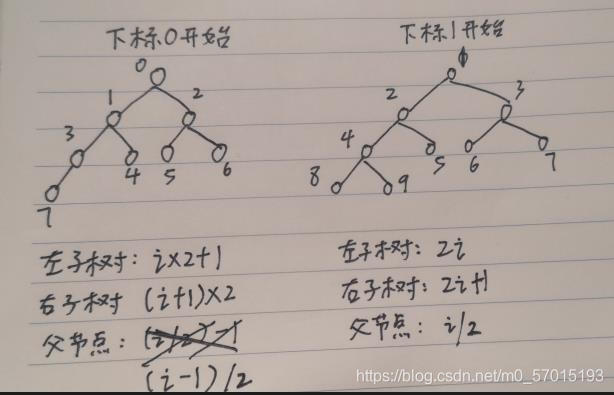 下标0开始
0
1
2
3
4
5
6
7
左子树: i×2+1
右子树 (i+1)×2
父节点:
(i-1)/2
下标1开始
2
3
4
5
6
7
8
9
左子树: 2i
右子树: 2i+1
父节点: i/2
https://blog.csdn.net/m0_57015193